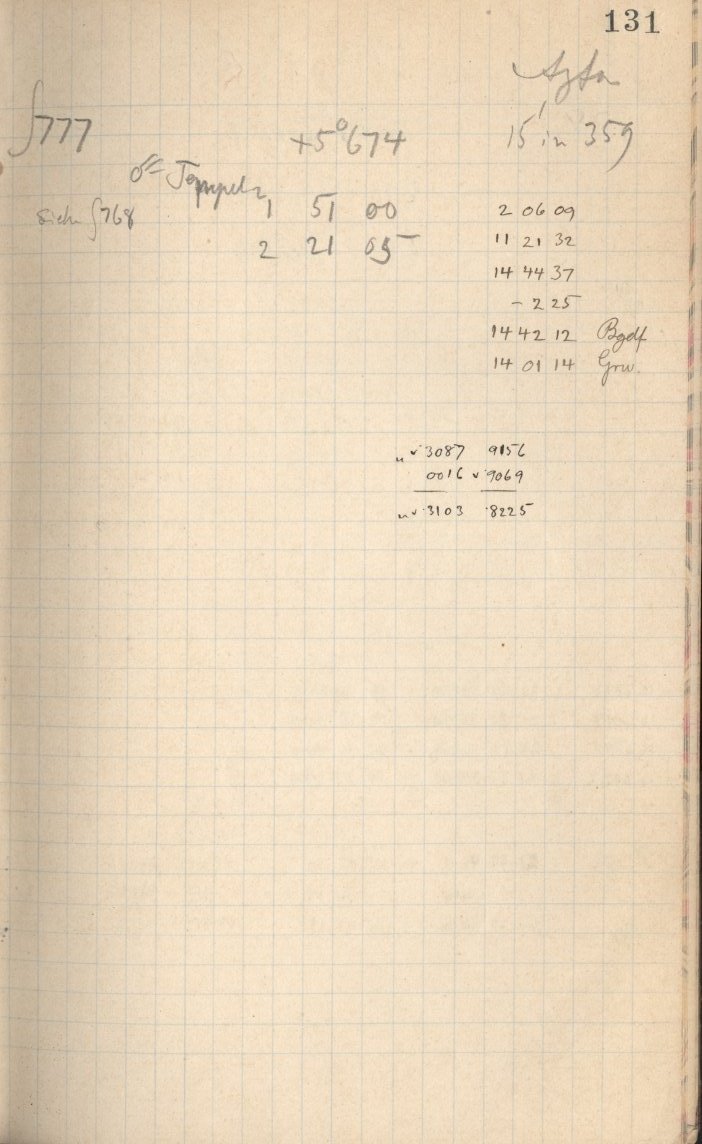 131
∫777 +5°674 15' in 359
Tempel
1 51 00
siehe ∫768
2 21 05
2 06 09
11 21 32
14 44 37
- 2 25
14 42 12 Bgdf
14 01 14 Grw.
3087 9156
0016 9069
3103 8225